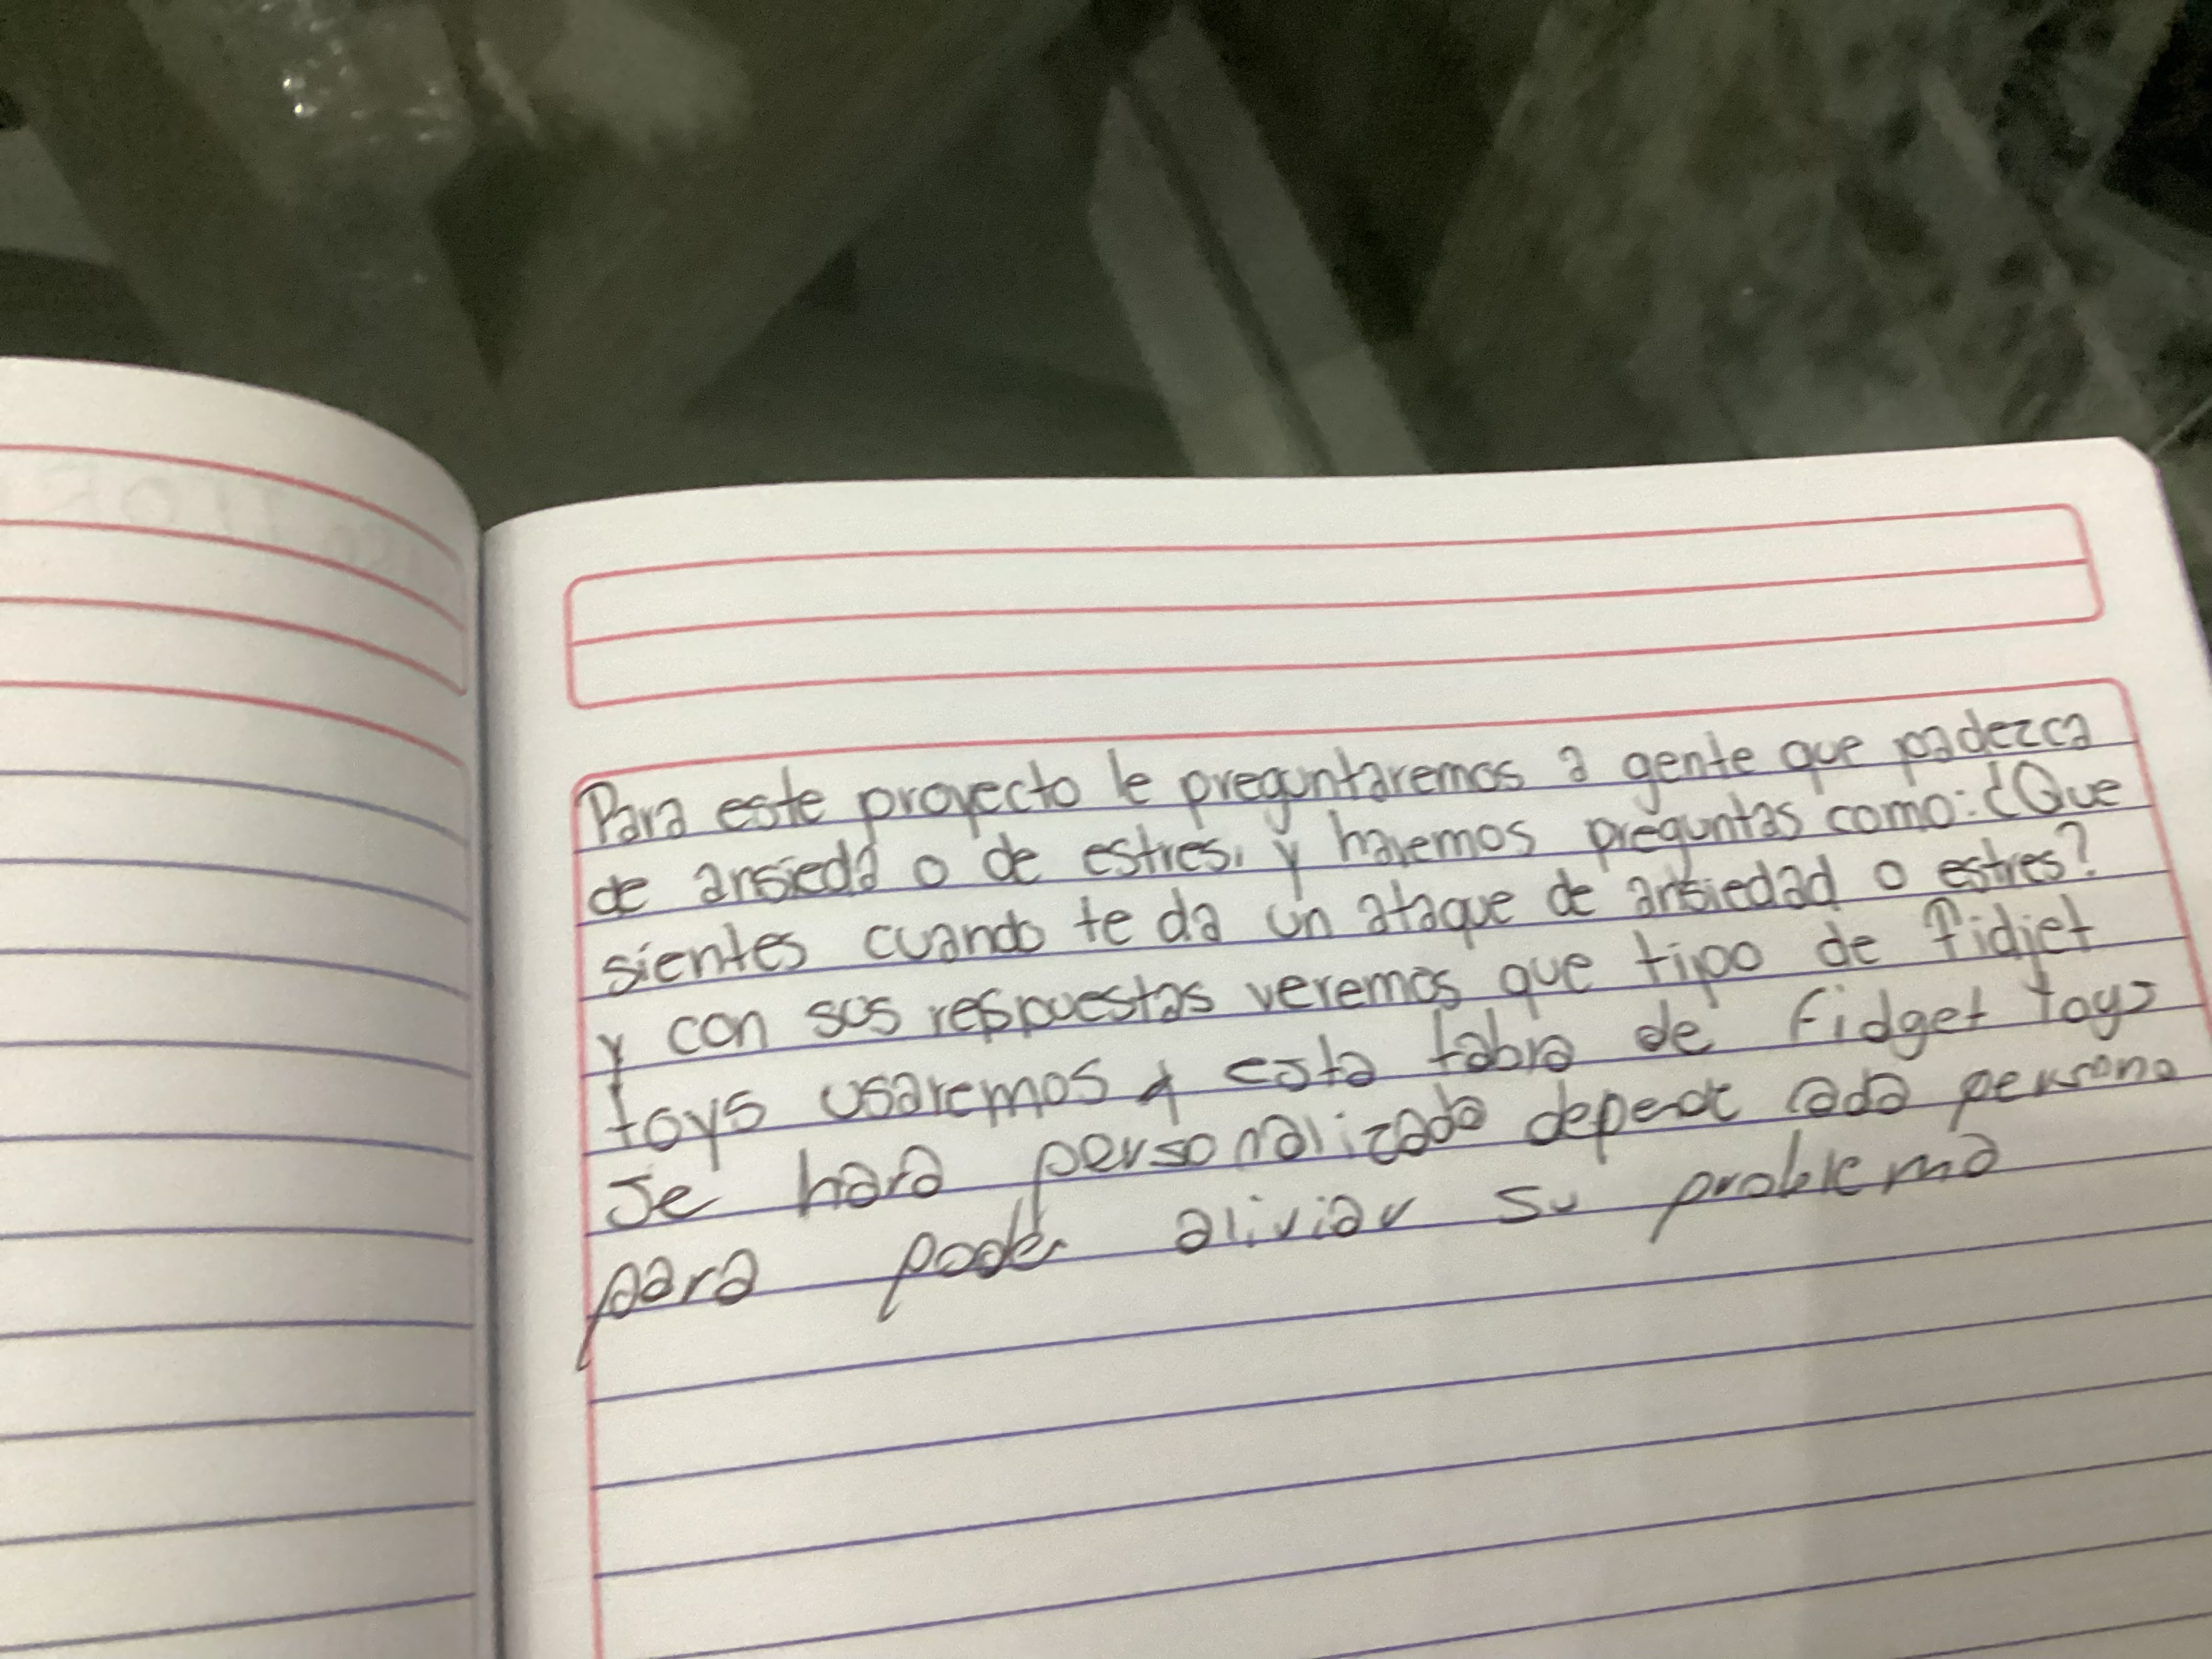 Para este proyecto le preguntaremos a gente que padezca
de ansieda o de estres, y haremos preguntas como: ¿Que
sientes cuando te da un ataque de ansiedad o estres?
y con sus respuestas veremos que tipo de fidjet
toys usaremos y esta tabra de fidget toys
se hara personalizada depende cada persona
para poder aliviar su problema